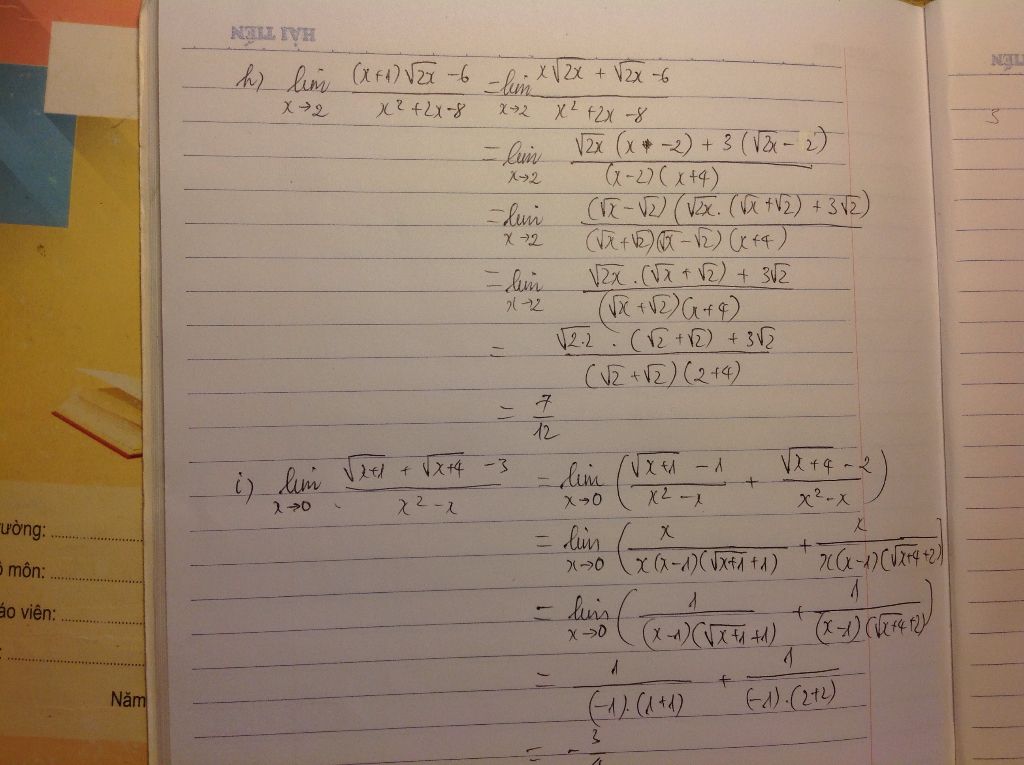 HẢI TIẾN
h) lim x→2 ((x+1)√2x −6)/(x² +2x−8) = lim x→2 (x√2x + √2x −6)/(x² +2x −8)
= lim x→2 (√2x (x −2) + 3 (√2x − 2))/((x−2)(x+4))
= lim x→2 ((√x −√2)(√2x . (√x +√2) + 3√2))/((√x +√2)(√x −√2)(x+4))
= lim x→2 (√2x . (√x + √2) + 3√2)/((√x +√2)(x+4))
= (√2.2 . (√2 +√2) + 3√2)/((√2 +√2)(2+4))
= 7/12
i) lim x→0 (√x+1 + √x+4 −3)/(x² −x) = lim x→0 ((√x+1 −1)/(x² −x) + (√x+4 −2)/(x² −x))
= lim x→0 (x/(x(x−1)(√x+1 +1)) + x/(x(x−1)(√x+4 +2)))
= lim x→0 (1/((x−1)(√x+1 +1)) + 1/((x−1)(√x+4 +2)))
= 1/((−1).(1+1)) + 1/((−1).(2+2))
= − 3
3
ường:
môn:
áo viên:
Năm